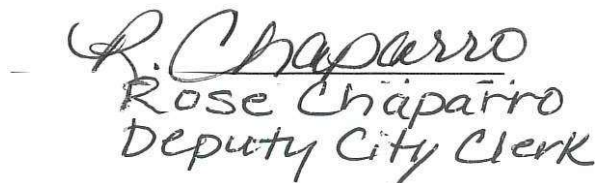 R. Chaparro
Rose Chaparro
Deputy City Clerk